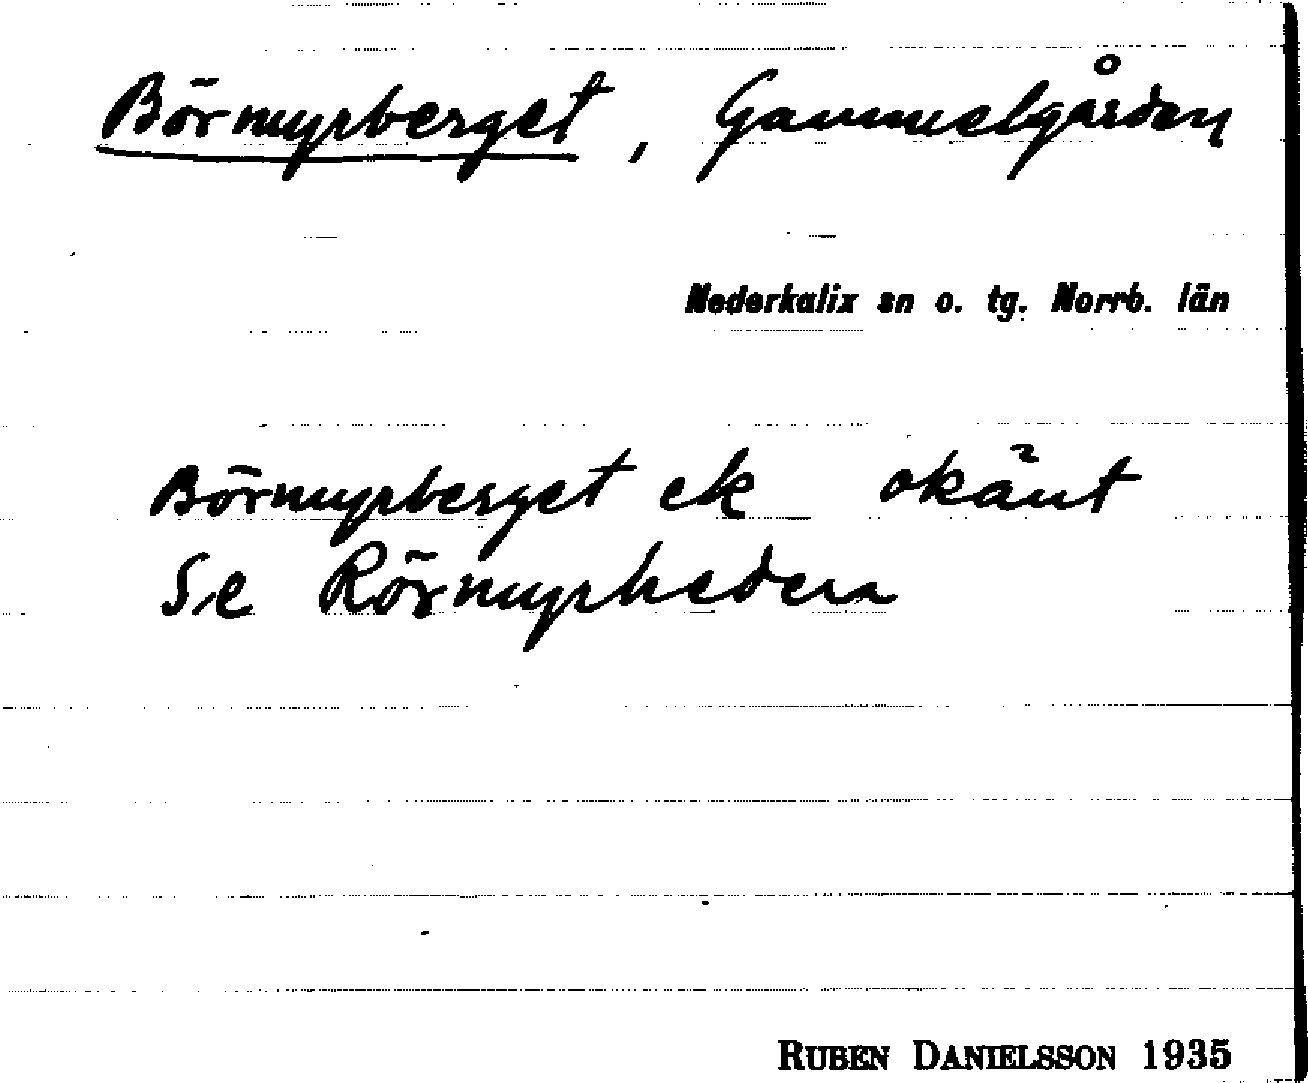 Börmyrberget, Gammelgården
Nederkalix sn o. tg. Norrb. län
Börmyrberget ek okänt
Se Rörmyrheden
RUBEN DANIELSSON 1935